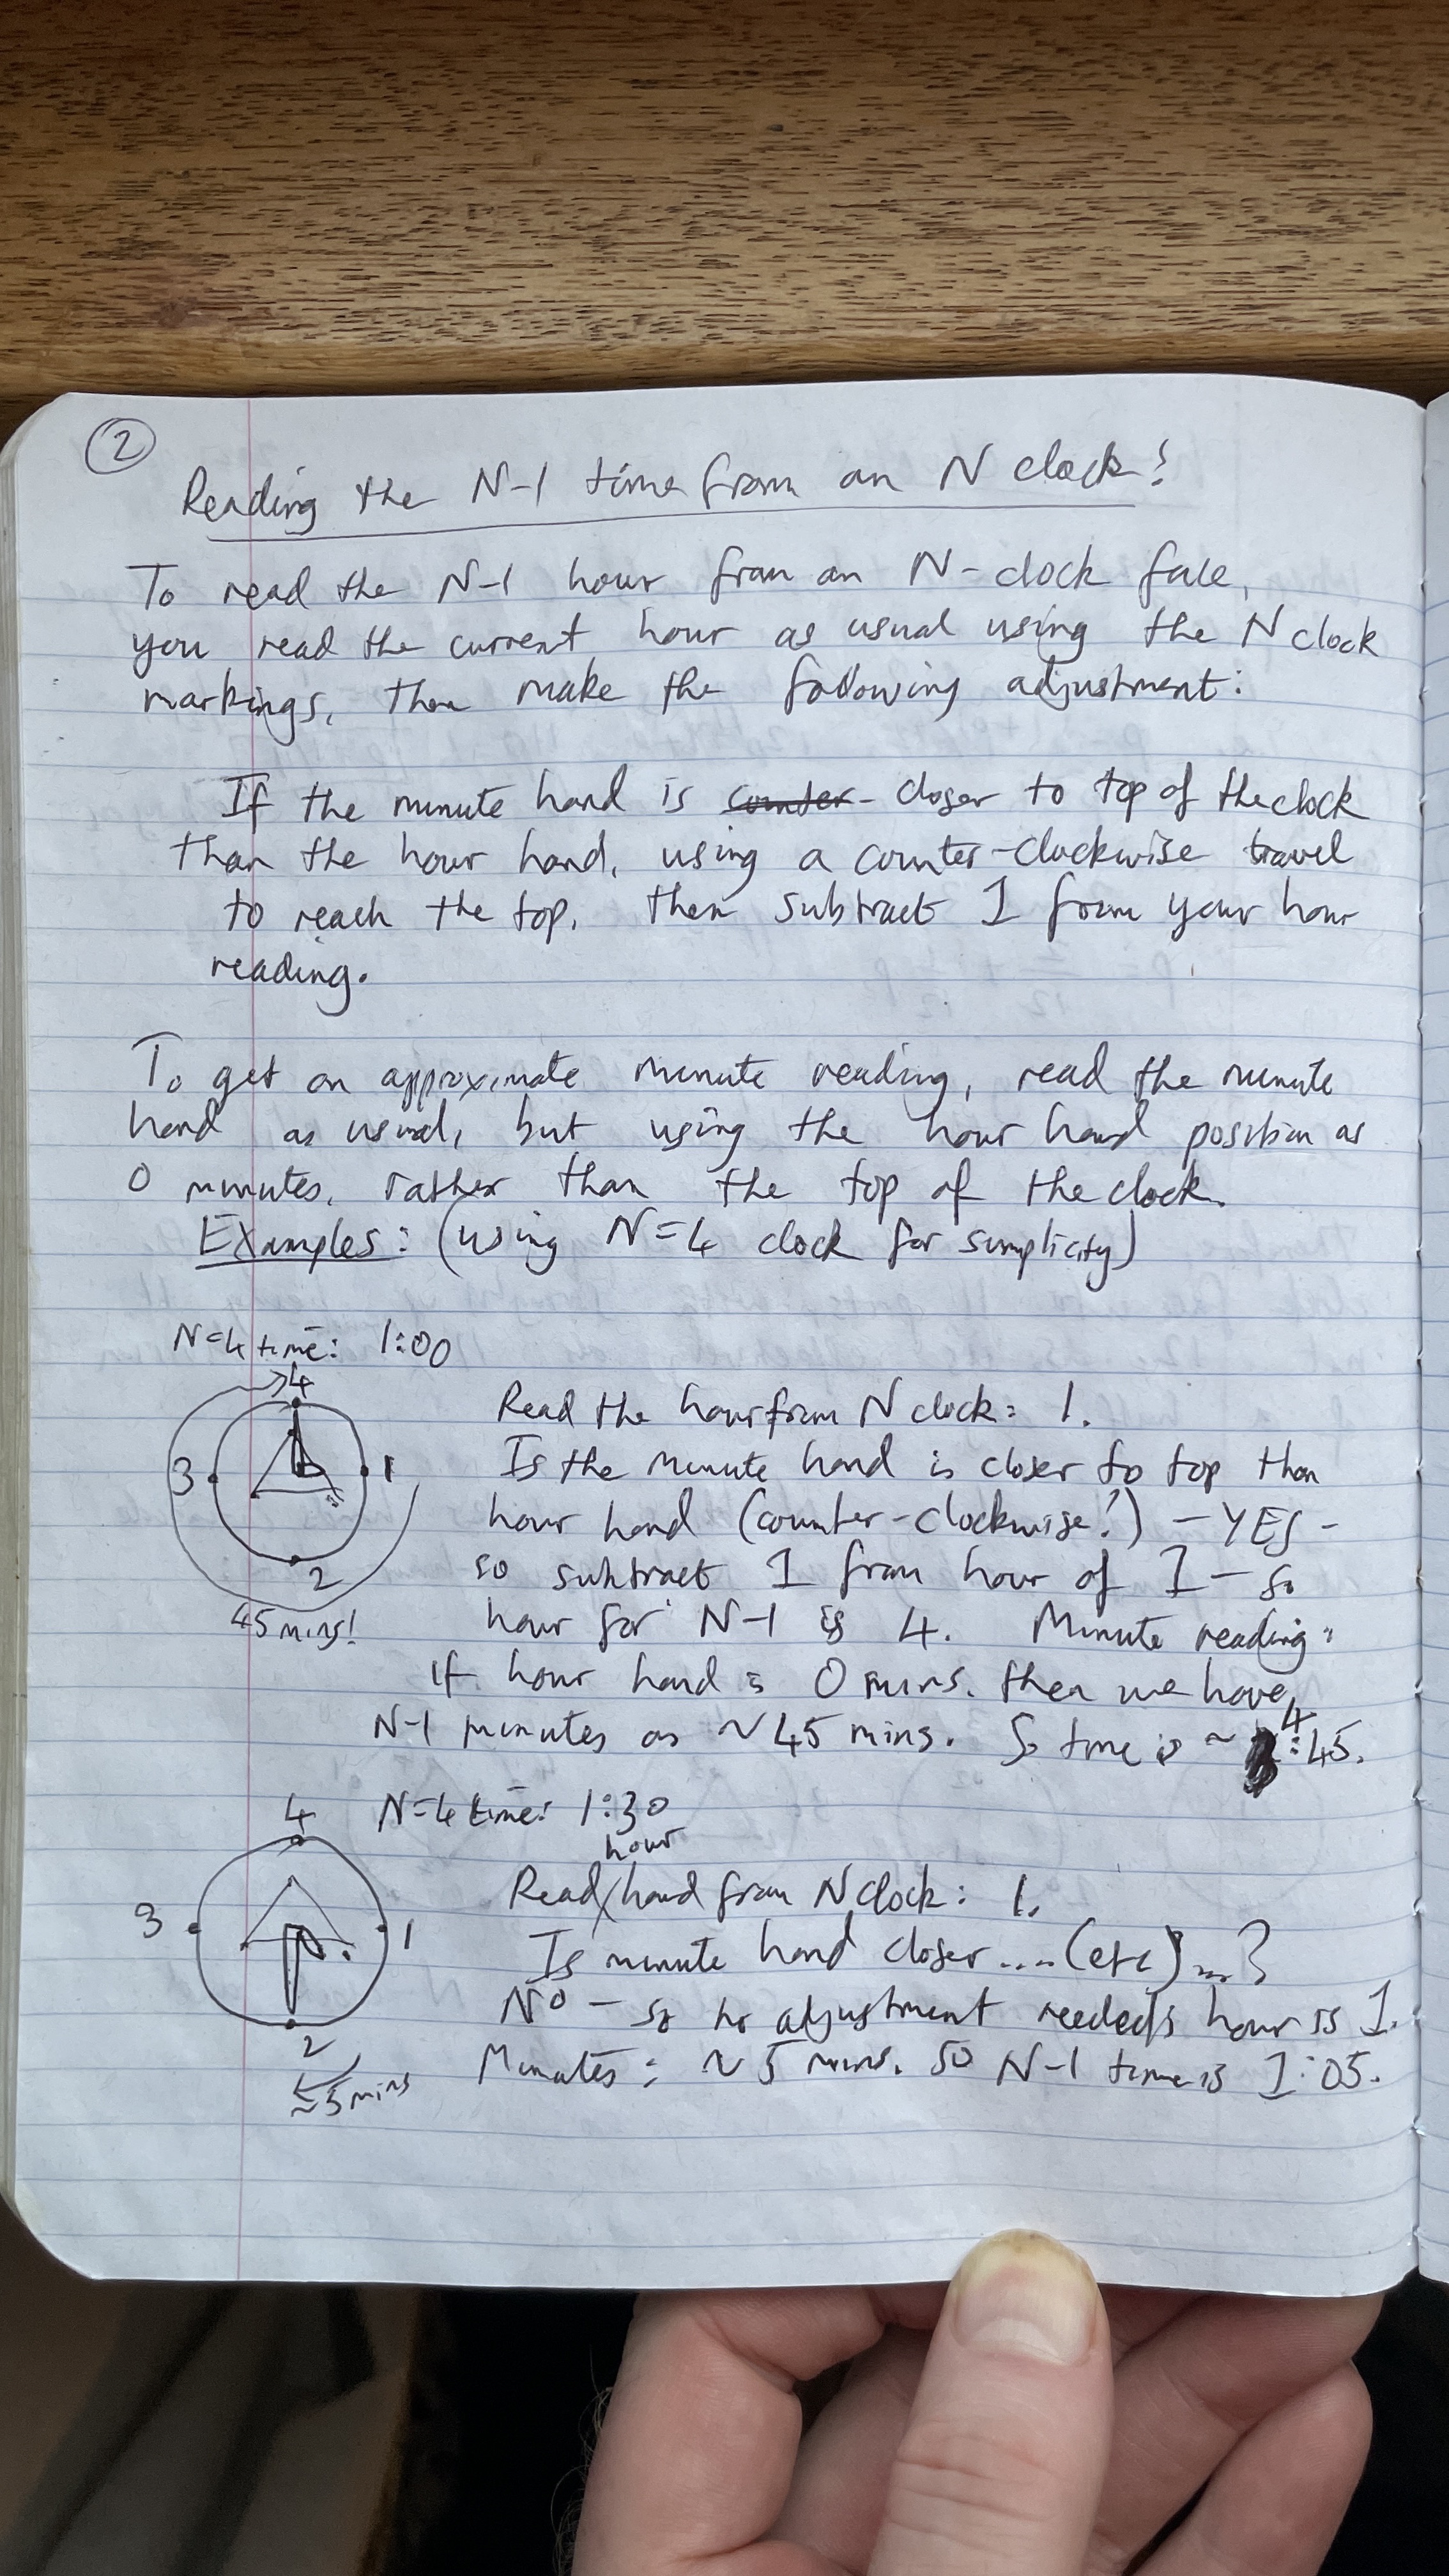 2
Reading the N-1 time from an N clock:
To read the N-1 hour from an N-clock face,
you read the current hour as usual using the N clock
markings, then make the following adjustment:
If the minute hand is counter- closer to top of the clock
than the hour hand, using a counter-clockwise travel
to reach the top, then subtract 1 from your hour
reading.
To get an approximate minute reading, read the minute
hand as usual, but using the hour hand position as
0 minutes, rather than the top of the clock.
Examples: (using N=4 clock for simplicity)
N=4 time: 1:00
4
3
1
2
45 mins!
Read the hour from N clock: 1.
Is the minute hand is closer to top than
hour hand (counter-clockwise!) - YES -
so subtract 1 from hour of 1 - so
hour for N-1 is 4. Minute reading:
if hour hand is 0 mins. then we have
N-1 minutes as ~45 mins. So time is ~ 4:45.
N=4 time: 1:30
4
3
1
2
≈5 mins
Read hour hand from N clock: 1.
Is minute hand closer .... (etc) ...?
NO - so no adjustment needed, hour is 1.
Minutes: ~5 mins. So N-1 time is 1:05.